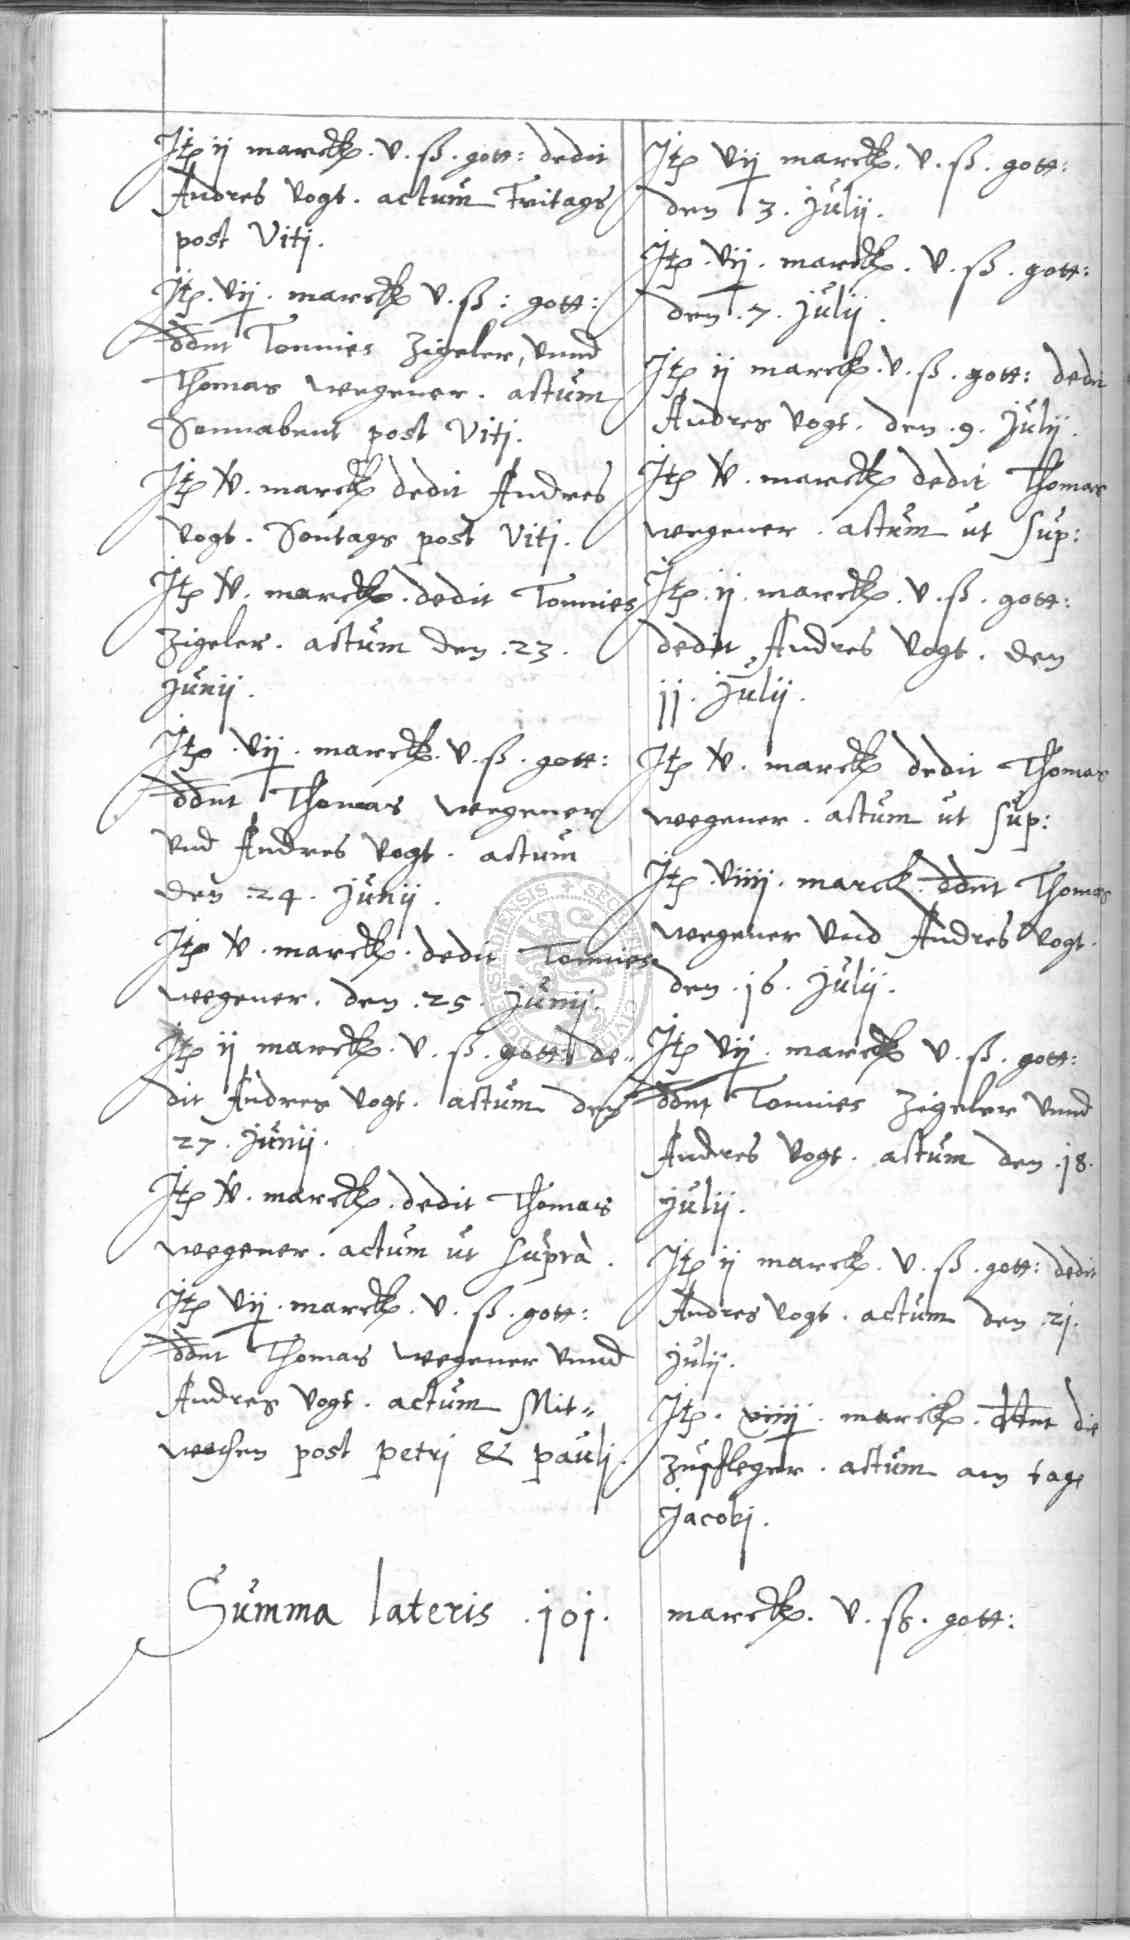 Itẽ ij marck. v. ß. gott: dedit
Andres Vogt. actum Fritags
post Viti.
Itẽ. vij. marck v. ß: gott:
ddnt Tonnies Zigeler, vnnd
Thomas wegener. actum
Sonnabent post Viti.
Itẽ v. marck dedit Andres
Vogt. Sontags post Viti.
Itẽ v. marck. dedit Tonnies
Zigeler. actum den .23.
Junij.
Itẽ .vij. marck. v. ß. gott:
ddnt Thomas wegener
vnd Andres Vogt. actum
den .24. Junij.
Itẽ v. marck. dedit Tonnies
wegener. den .25. Junij.
Itẽ ij marck. v. ß. gott: de„
dit Andres Vogt. actum den
27. Junij.
Itẽ v. marck. dedit Thomas
wegener. actum ut supra.
Itẽ vij. marck. v. ß. gott:
ddnt Thomas wegener vnnd
Andres Vogt. actum Mit„
wochen post petri & pauli.
Itẽ vij marck. v. ß. gott:
den 3. Julij.
Itẽ. vij. marck. v. ß. gott:
den .7. Julij.
Itẽ ij marck. v. ß. gott: dedit
Andres Vogt. den .9. Julij.
Itẽ v. marck dedit Thomas
wegener. actum ut sup:
Itẽ. ij. marck. v. ß. gott:
dedit Andres Vogt. den
jj. Julij.
Itẽ v. marck dedit Thomas
wegener. actum ut sup:
Itẽ .viiij. marck. ddnt Thomas
wegener vnd Andres Vogt.
den .j6. Julij.
Itẽ vij. marck v. ß. gott:
ddnt Tonnies Zigeler vnnd
Andres Vogt. actum den .j8.
Julij.
Itẽ ij marck. v. ß. gott: dedit
Andres Vogt. actum den .2j.
Julij.
Itẽ. viiij. marck. ddnt die
Zupfleger. actum am tage
Jacobj.
Summa lateris .joj. marck. v. ß. gott: